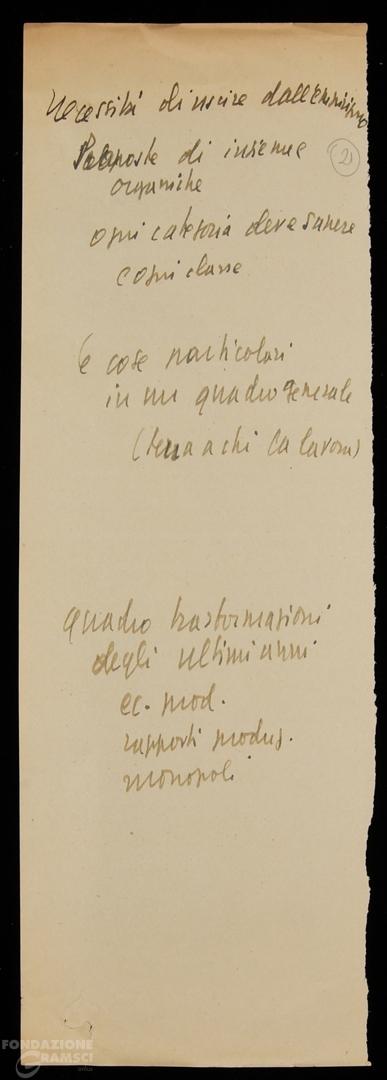 Necessità di uscire dall'empirismo
Proposte di insieme
2)
organiche
ogni categoria deve sapere
e ogni classe
le cose particolari
in un quadro generale
(terra a chi la lavora)
quadro trasformazioni
degli ultimi anni
ec. mod.
rapporti produz.
monopoli
FONDAZIONE
GRAMSCI
onlus